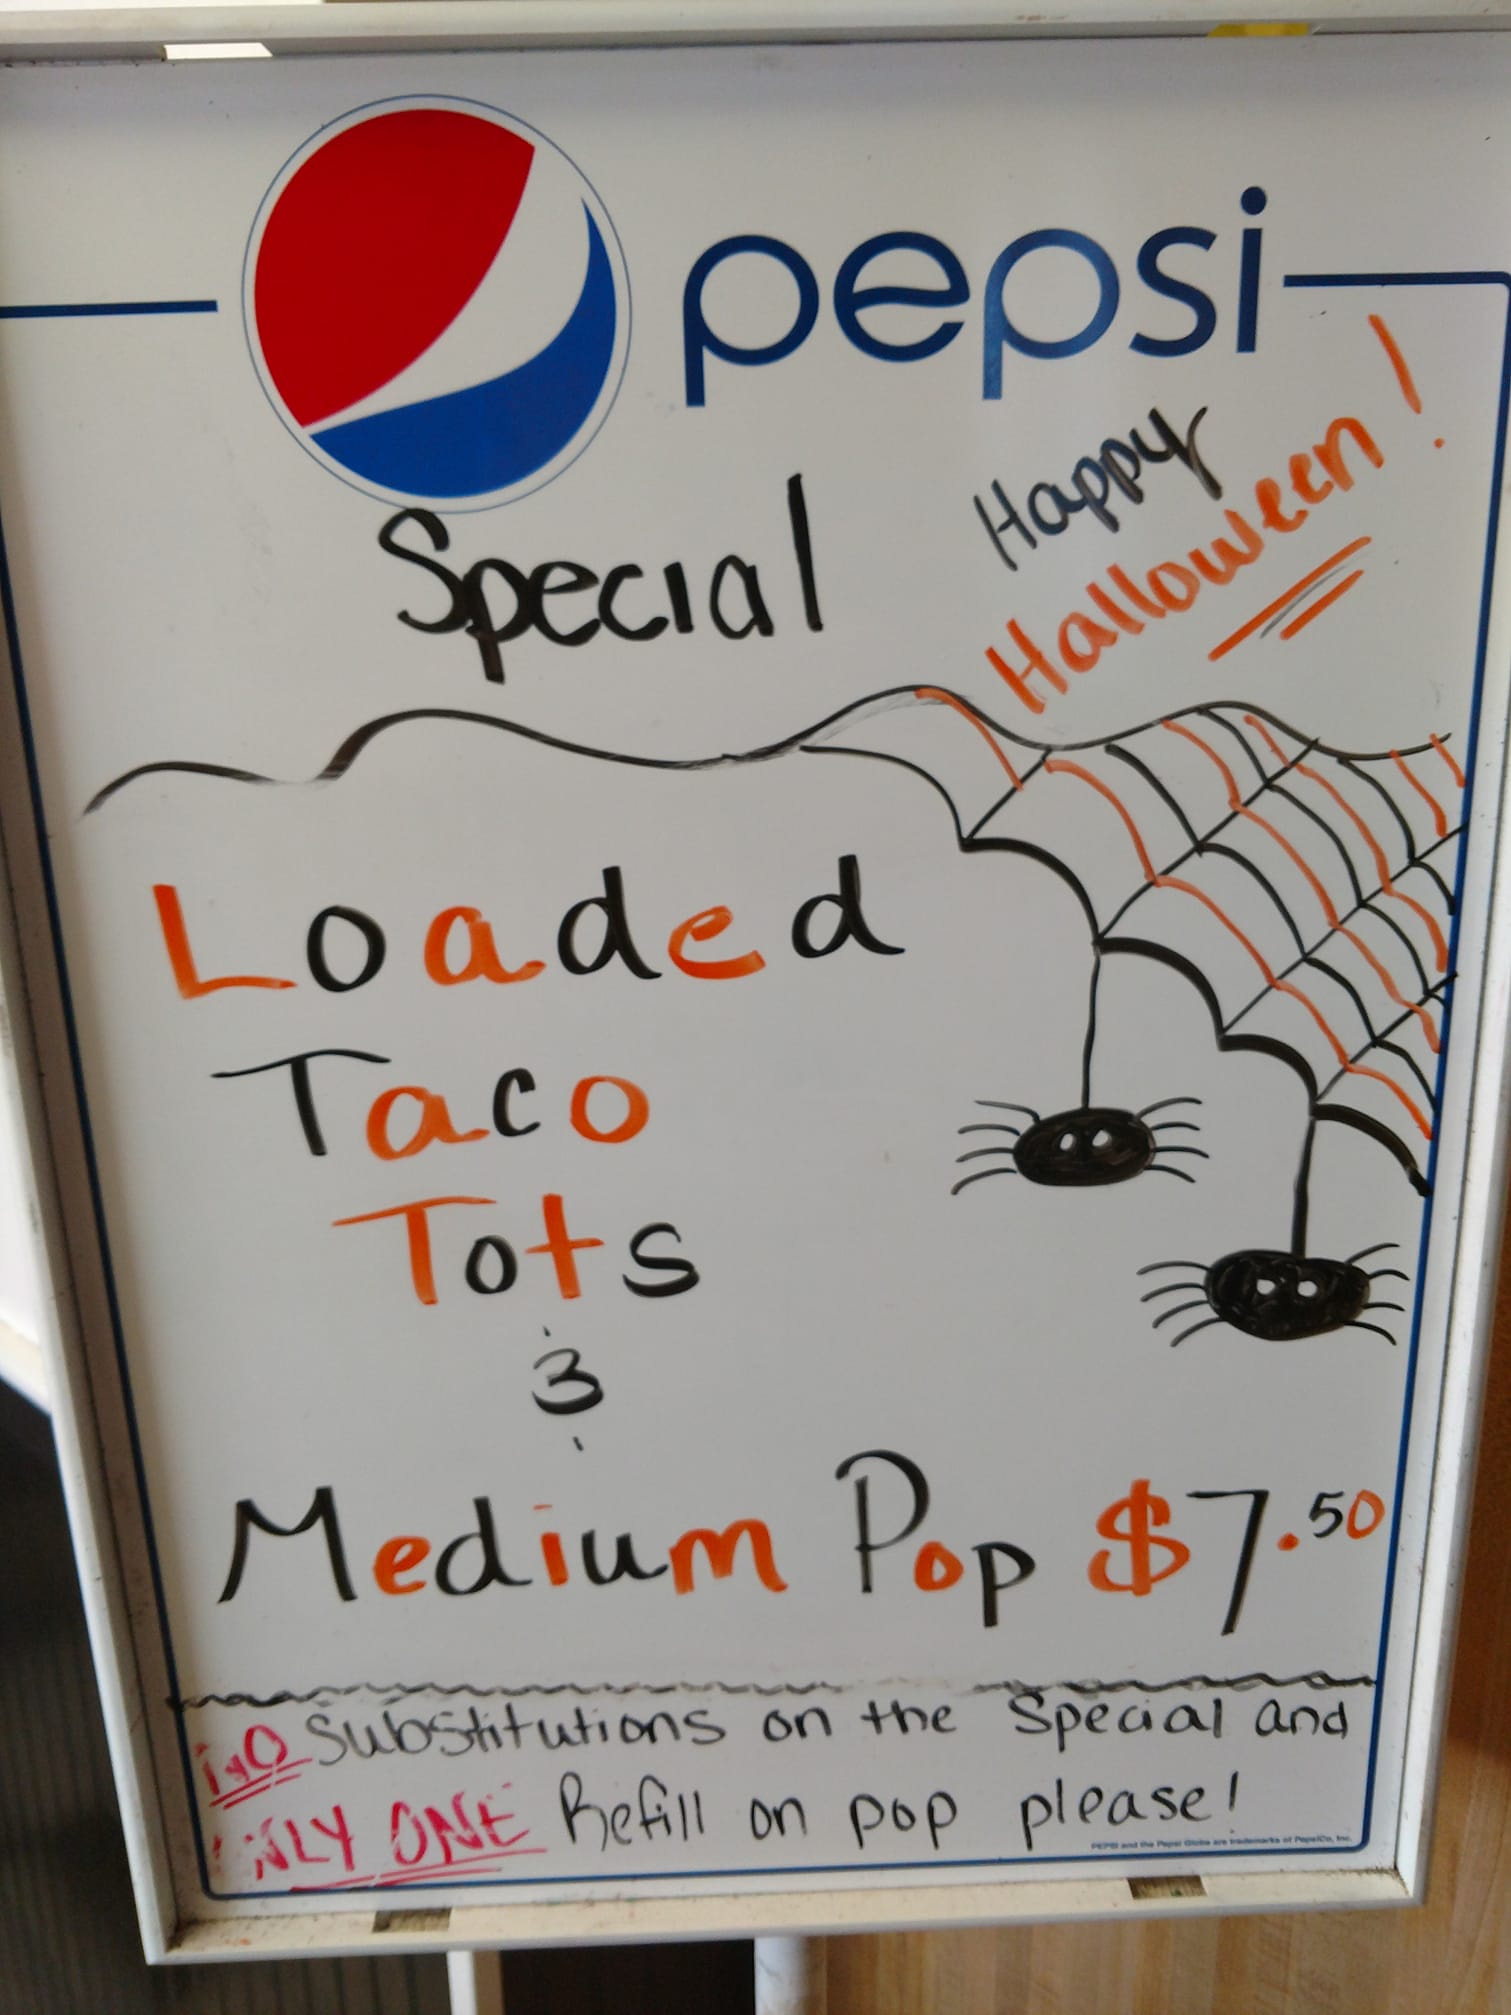 pepsi
Special
Happy
Halloween!
Loaded
Taco
Tots
&
Medium Pop $7.50
NO Substitutions on the Special and
ONLY ONE Refill on pop please!
PEPSI and the Pepsi Globe are trademarks of PepsiCo, Inc.